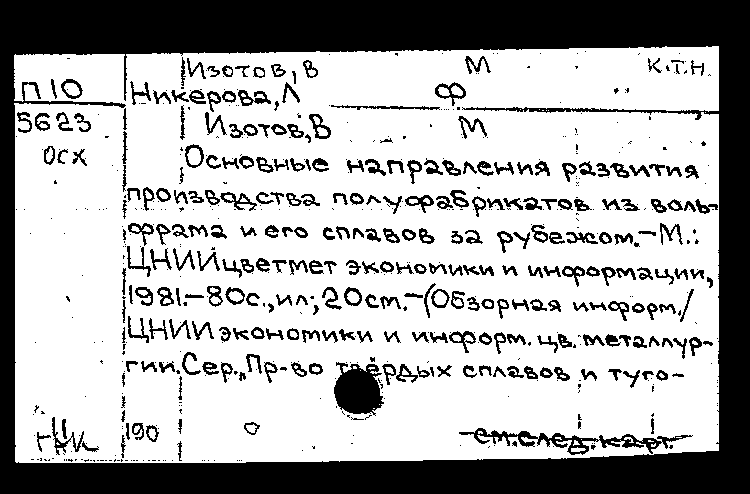 Изотов, В М К.Т.Н.
П10 Никерова, Л Ф
5623 Изотов, В М
Осх Основные направления развития
производства полуфабрикатов из воль-
фрама и его сплавов за рубежом.-М.:
ЦНИИцветмет экономики и информации,
1981.-80с., ил; 20см.-(Обзорная информ./
ЦНИИ экономики и информ. цв. металлур-
гии. Сер., Пр-во твёрдых сплавов и туго-
190 см. след. карт.